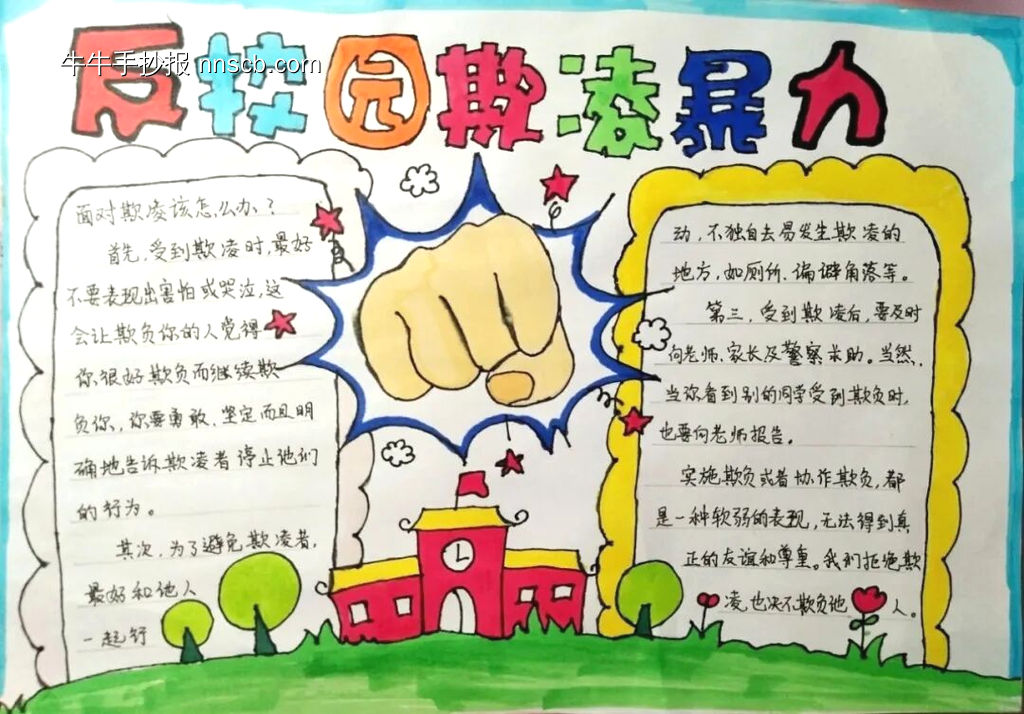 反校园欺凌暴力
牛牛手抄报 nnscb.com
面对欺凌该怎么办？
首先，受到欺凌时，最好
不要表现出害怕或哭泣，这
会让欺负你的人觉得
你很好欺负而继续欺
负你，你要勇敢、坚定而且明
确地告诉欺凌者停止他们
的行为。
其次，为了避免欺凌者，
最好和他人
一起行
动，不独自去易发生欺凌的
地方，如厕所、偏避角落等。
第三，受到欺凌后，要及时
向老师、家长及警察求助。当然，
当你看到别的同学受到欺负时，
也要向老师报告。
实施欺负或者协作欺负，都
是一种软弱的表现，无法得到真
正的友谊和尊重。我们拒绝欺
凌，也决不欺负他人。